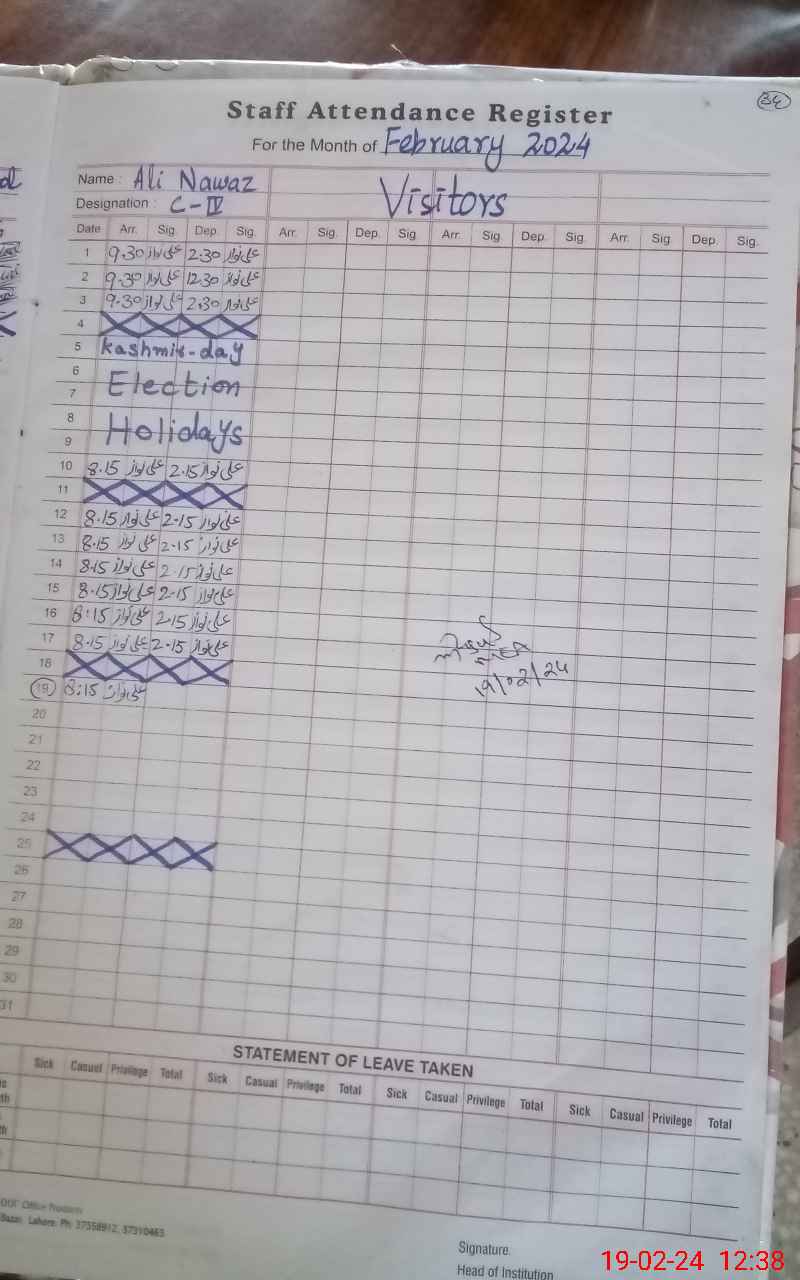 34
Staff Attendance Register
For the Month of February 2024
Name : Ali Nawaz
Designation : C-IV
Visitors
Date Arr. Sig. Dep. Sig. Arr. Sig. Dep. Sig. Arr. Sig. Dep. Sig. Arr. Sig. Dep. Sig.
1 9.30 علی نواز 2.30 علی نواز
2 9.30 علی نواز 12.30 علی نواز
3 9.30 علی نواز 2.30 علی نواز
4
5 Kashmir-day
6
7 Election
8
9 Holidays
10 8.15 علی نواز 2.15 علی نواز
11
12 8.15 علی نواز 2.15 علی نواز
13 8.15 علی نواز 2.15 علی نواز
14 8.15 علی نواز 2.15 علی نواز
15 8.15 علی نواز 2.15 علی نواز
16 8:15 علی نواز 2.15 علی نواز
17 8.15 علی نواز 2.15 علی نواز
18
19 8:15 علی نواز
19/02/24
20
21
22
23
24
25
26
27
28
29
30
31
STATEMENT OF LEAVE TAKEN
Sick Casual Privilege Total Sick Casual Privilege Total Sick Casual Privilege Total Sick Casual Privilege Total
Office Products
Bazar, Lahore. Ph: 37358912, 37310465
Signature.
Head of Institution
19-02-24 12:38